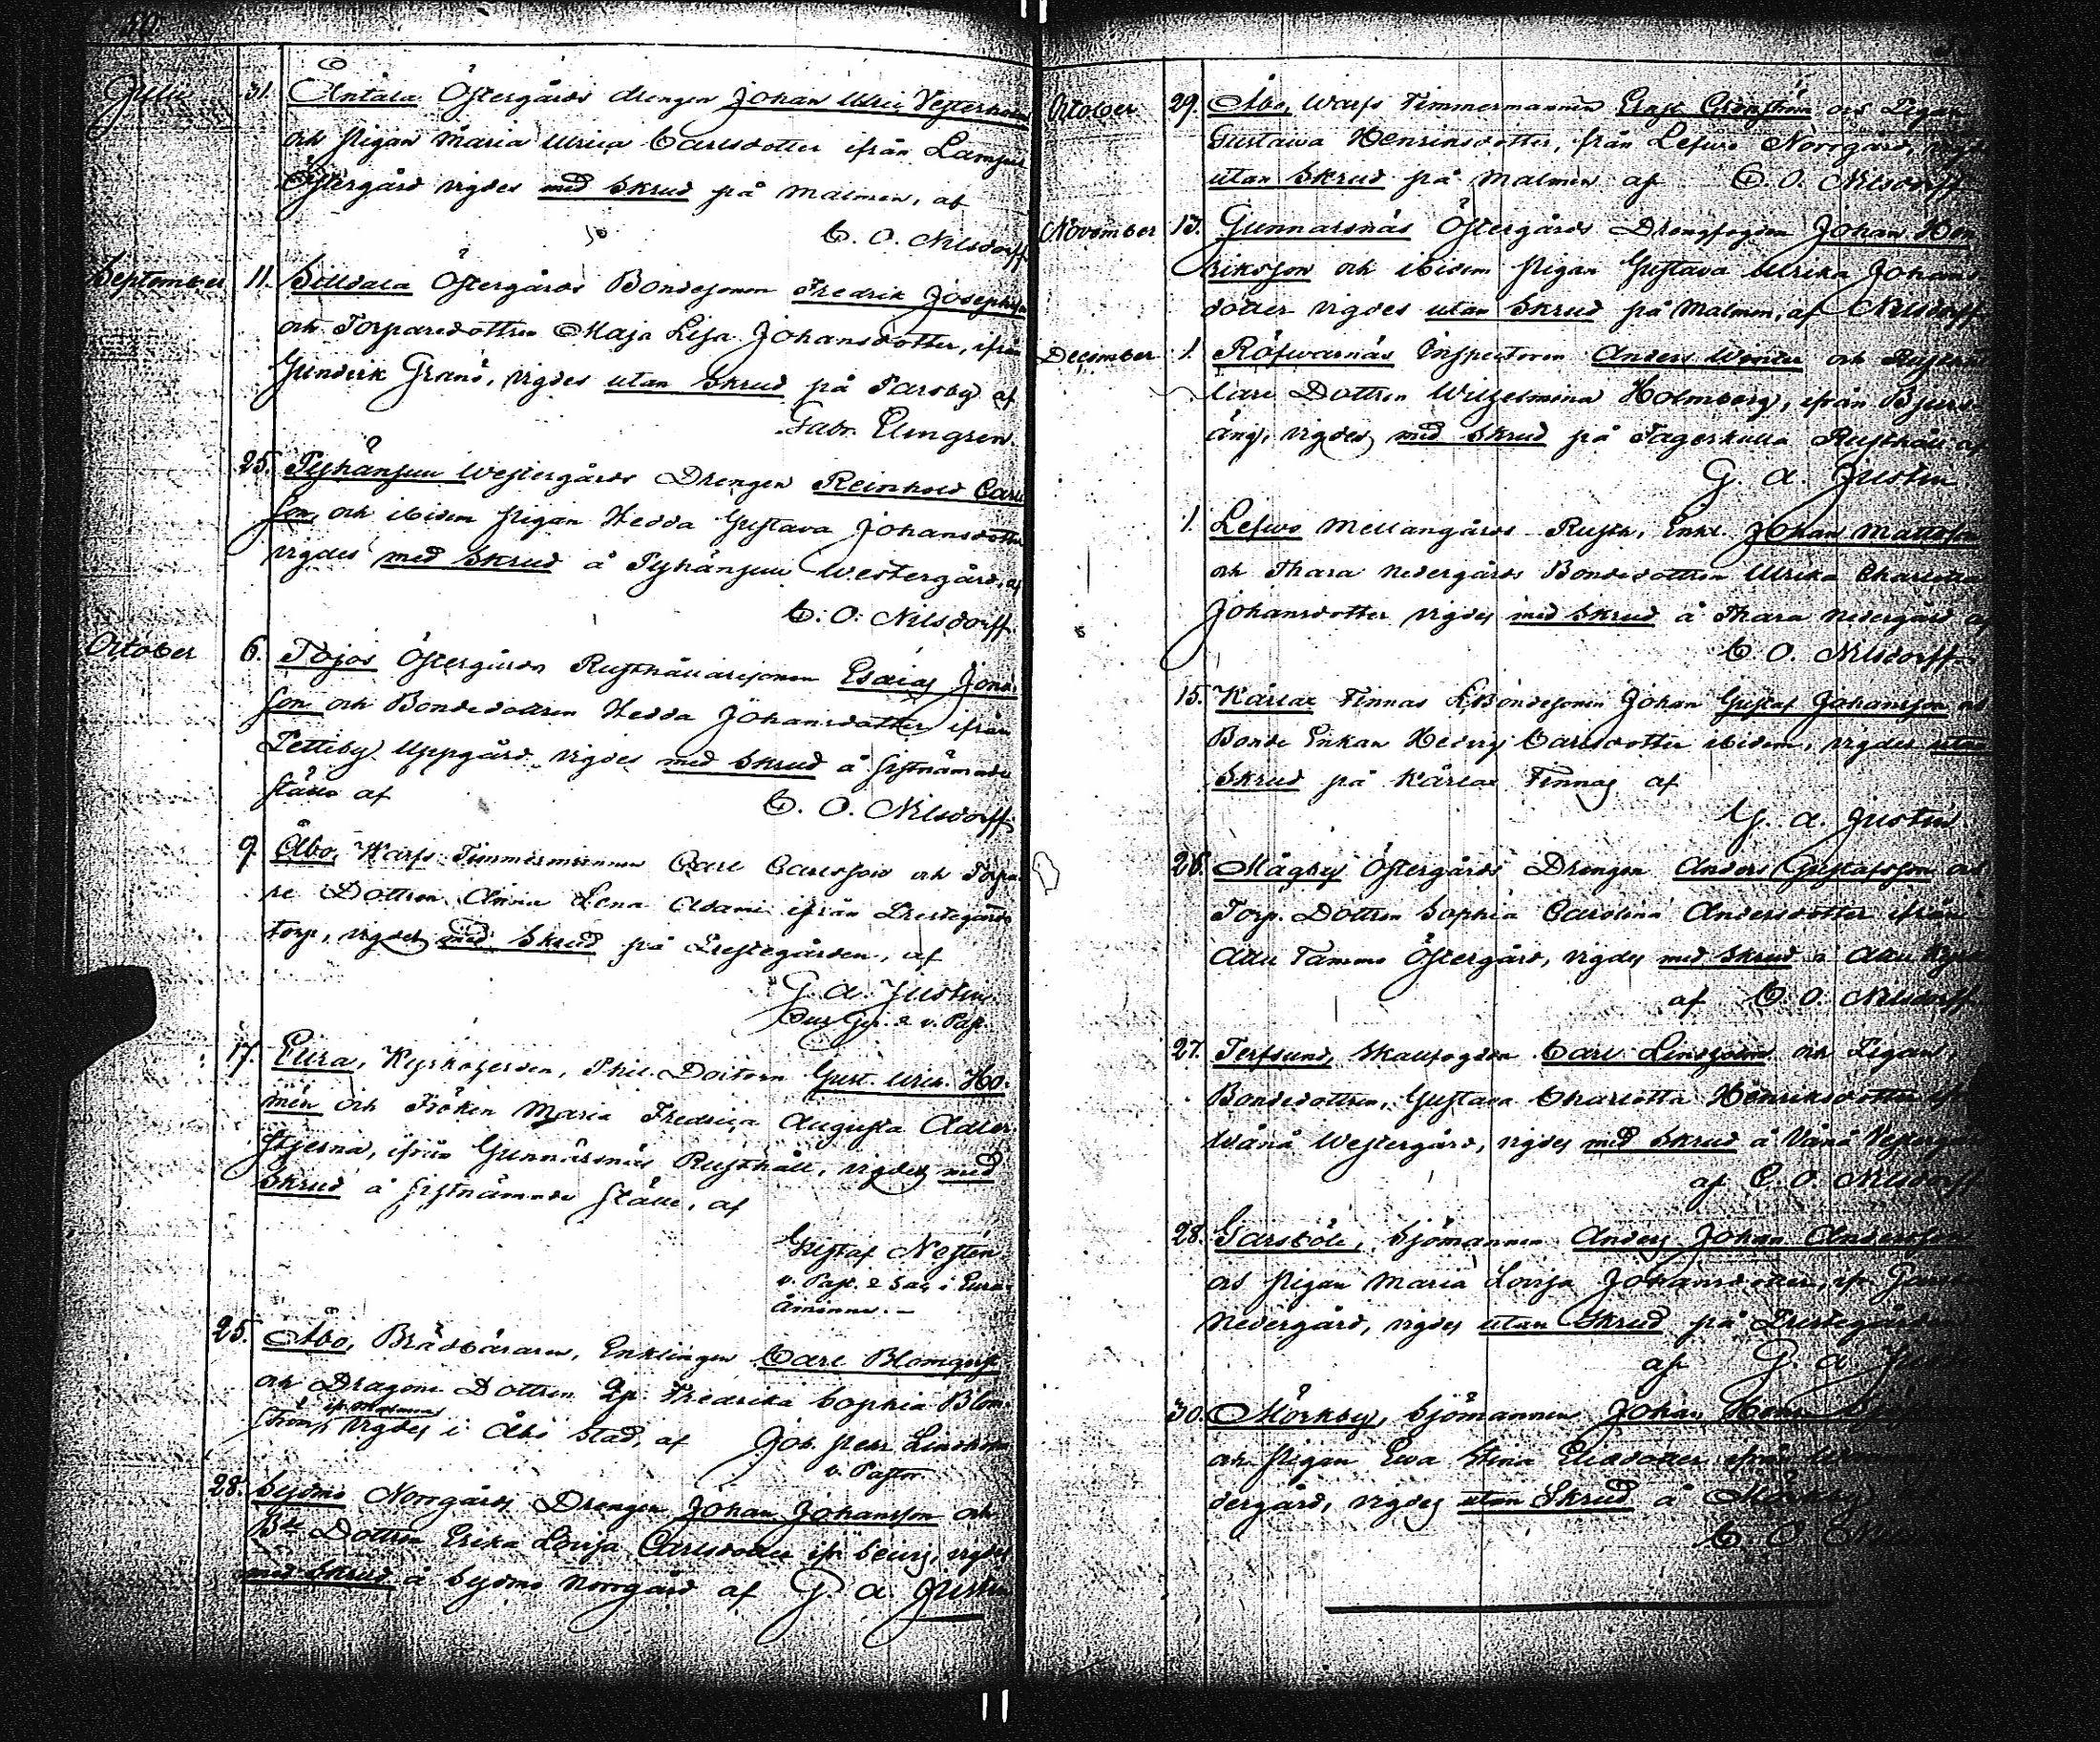 Julii 31. Antala Östergårds drengen Johan Ulric Vesterholm
och pigan Maria Ulrica Carlsdotter ifrån
Östergård vigdes med Skrud på Malmen, af
C. O. Nilsdorff
September 11. Östergårds Bondesonen Fredrik Josephsson
och Torparedottren Maja Lisa Johansdotter, ifrån
Granö, vigdes utan Skrud på Tarsby af
Gabr. Elmgren
25. Westergårds Drengen Reinhold Carls
son, och ibidem pigan Hedda Gustava Johansdotter
vigdes med Skrud å Westergård, af
C. O. Nilsdorff
October 6. Östergårds Rusthållaresonen Esaias Jons
son och Bondedottren Hedda Johansdotter ifrån
Pettiby Uppgård vigdes med Skrud å sistnämnde
ställe af
C. O. Nilsdorff
9. Åbo, Warfs Timmermannen Carl Carlsson och Torpa
re Dottren Anna Lena Adami ifrån Prestegårds
torp, vigdes med Skrud på Prestegården, af
G. A. Justin
v. Past.
17. Eura, Kyrkoherden, Phil. Doctorn Gust. Ulrik Ho-
mén och Fröken Maria Fredrica Augusta Adler
stjerna, ifrån Gunnarsnäs Rusthåll, vigdes med
Skrud å sistnämnde ställe, af
Gustaf
v. Past. & Sac. i Eura
åminne.
25. Åbo, Brädbäraren, Enklingen Carl Blomqvist
och Dragone Dottren Fredrika Sophia Blom
ström, vigdes i Åbo Stad, af Joh. Pehr Lindholm
v. Pastor
28. Norrgårds Drengen Johan Johansson och
Dottren Erika Lovisa Carlsdotter vigdes
med Skrud å Norrgård af G. A. Justin
October 29. Åbo, Warfs Timmermannen och Pigan
Gustawa Henriksdotter, från Lefwo Norrgård, vigdes
utan Skrud på Malmen af C. O. Nilsdorff
November 13. Gunnarsnäs Östergårds Drengfogden Johan Hen
riksson och ibidem pigan Gustava Ulrika Johans
dotter vigdes utan Skrud på Malmen, af Nilsdorff
December 1. Röfwarnäs Inspectoren Anders Winter och
lare Dottren Wilhelmina Holmberg, ifrån Bjers
äng, vigdes med Skrud på Tagerkulla Rusthåll af
G. A. Justin
1. Lefwo Mellangårds Rusth. Enkl. Johan Mattsson
och Thara Nedergårds Bondedottren Ulrika Charlotta
Johansdotter vigdes med Skrud å Thara Nedergård af
C. O. Nilsdorff
15. Kärlax Finnas Bondesonen Johan Gustaf Johansson och
Bonde Enkan Hedvig Carlsdotter ibidem, vigdes utan
Skrud på Kärlax Finnas af
G. A. Justin
26. Mågby Östergårds Drengen Anders Gustafsson och
Torp. Dottren Sophia Carolina Andersdotter ifrån
Attu Tammo Östergård, vigdes med Skrud i Attu
af C. O. Nilsdorff
27. Terfsund, Skallfogden Carl Lindholm och Pigan,
Bondedottren, Gustava Charlotta Henriksdotter
Wånå Westergård, vigdes med Skrud å Vånå
af C. O. Nilsdorff
28. Garsböle, Sjömannen Anders Johan Andersson
och pigan Maria Lovisa Johansdotter, ifr.
Nedergård, vigdes utan Skrud på Prestegården
af G. A.
30. Mörkby, Sjömannen Johan
och Pigan Ewa Stina Eliasdotter ifrån
dergård, vigdes utan Skrud å Mörkby
C. O.